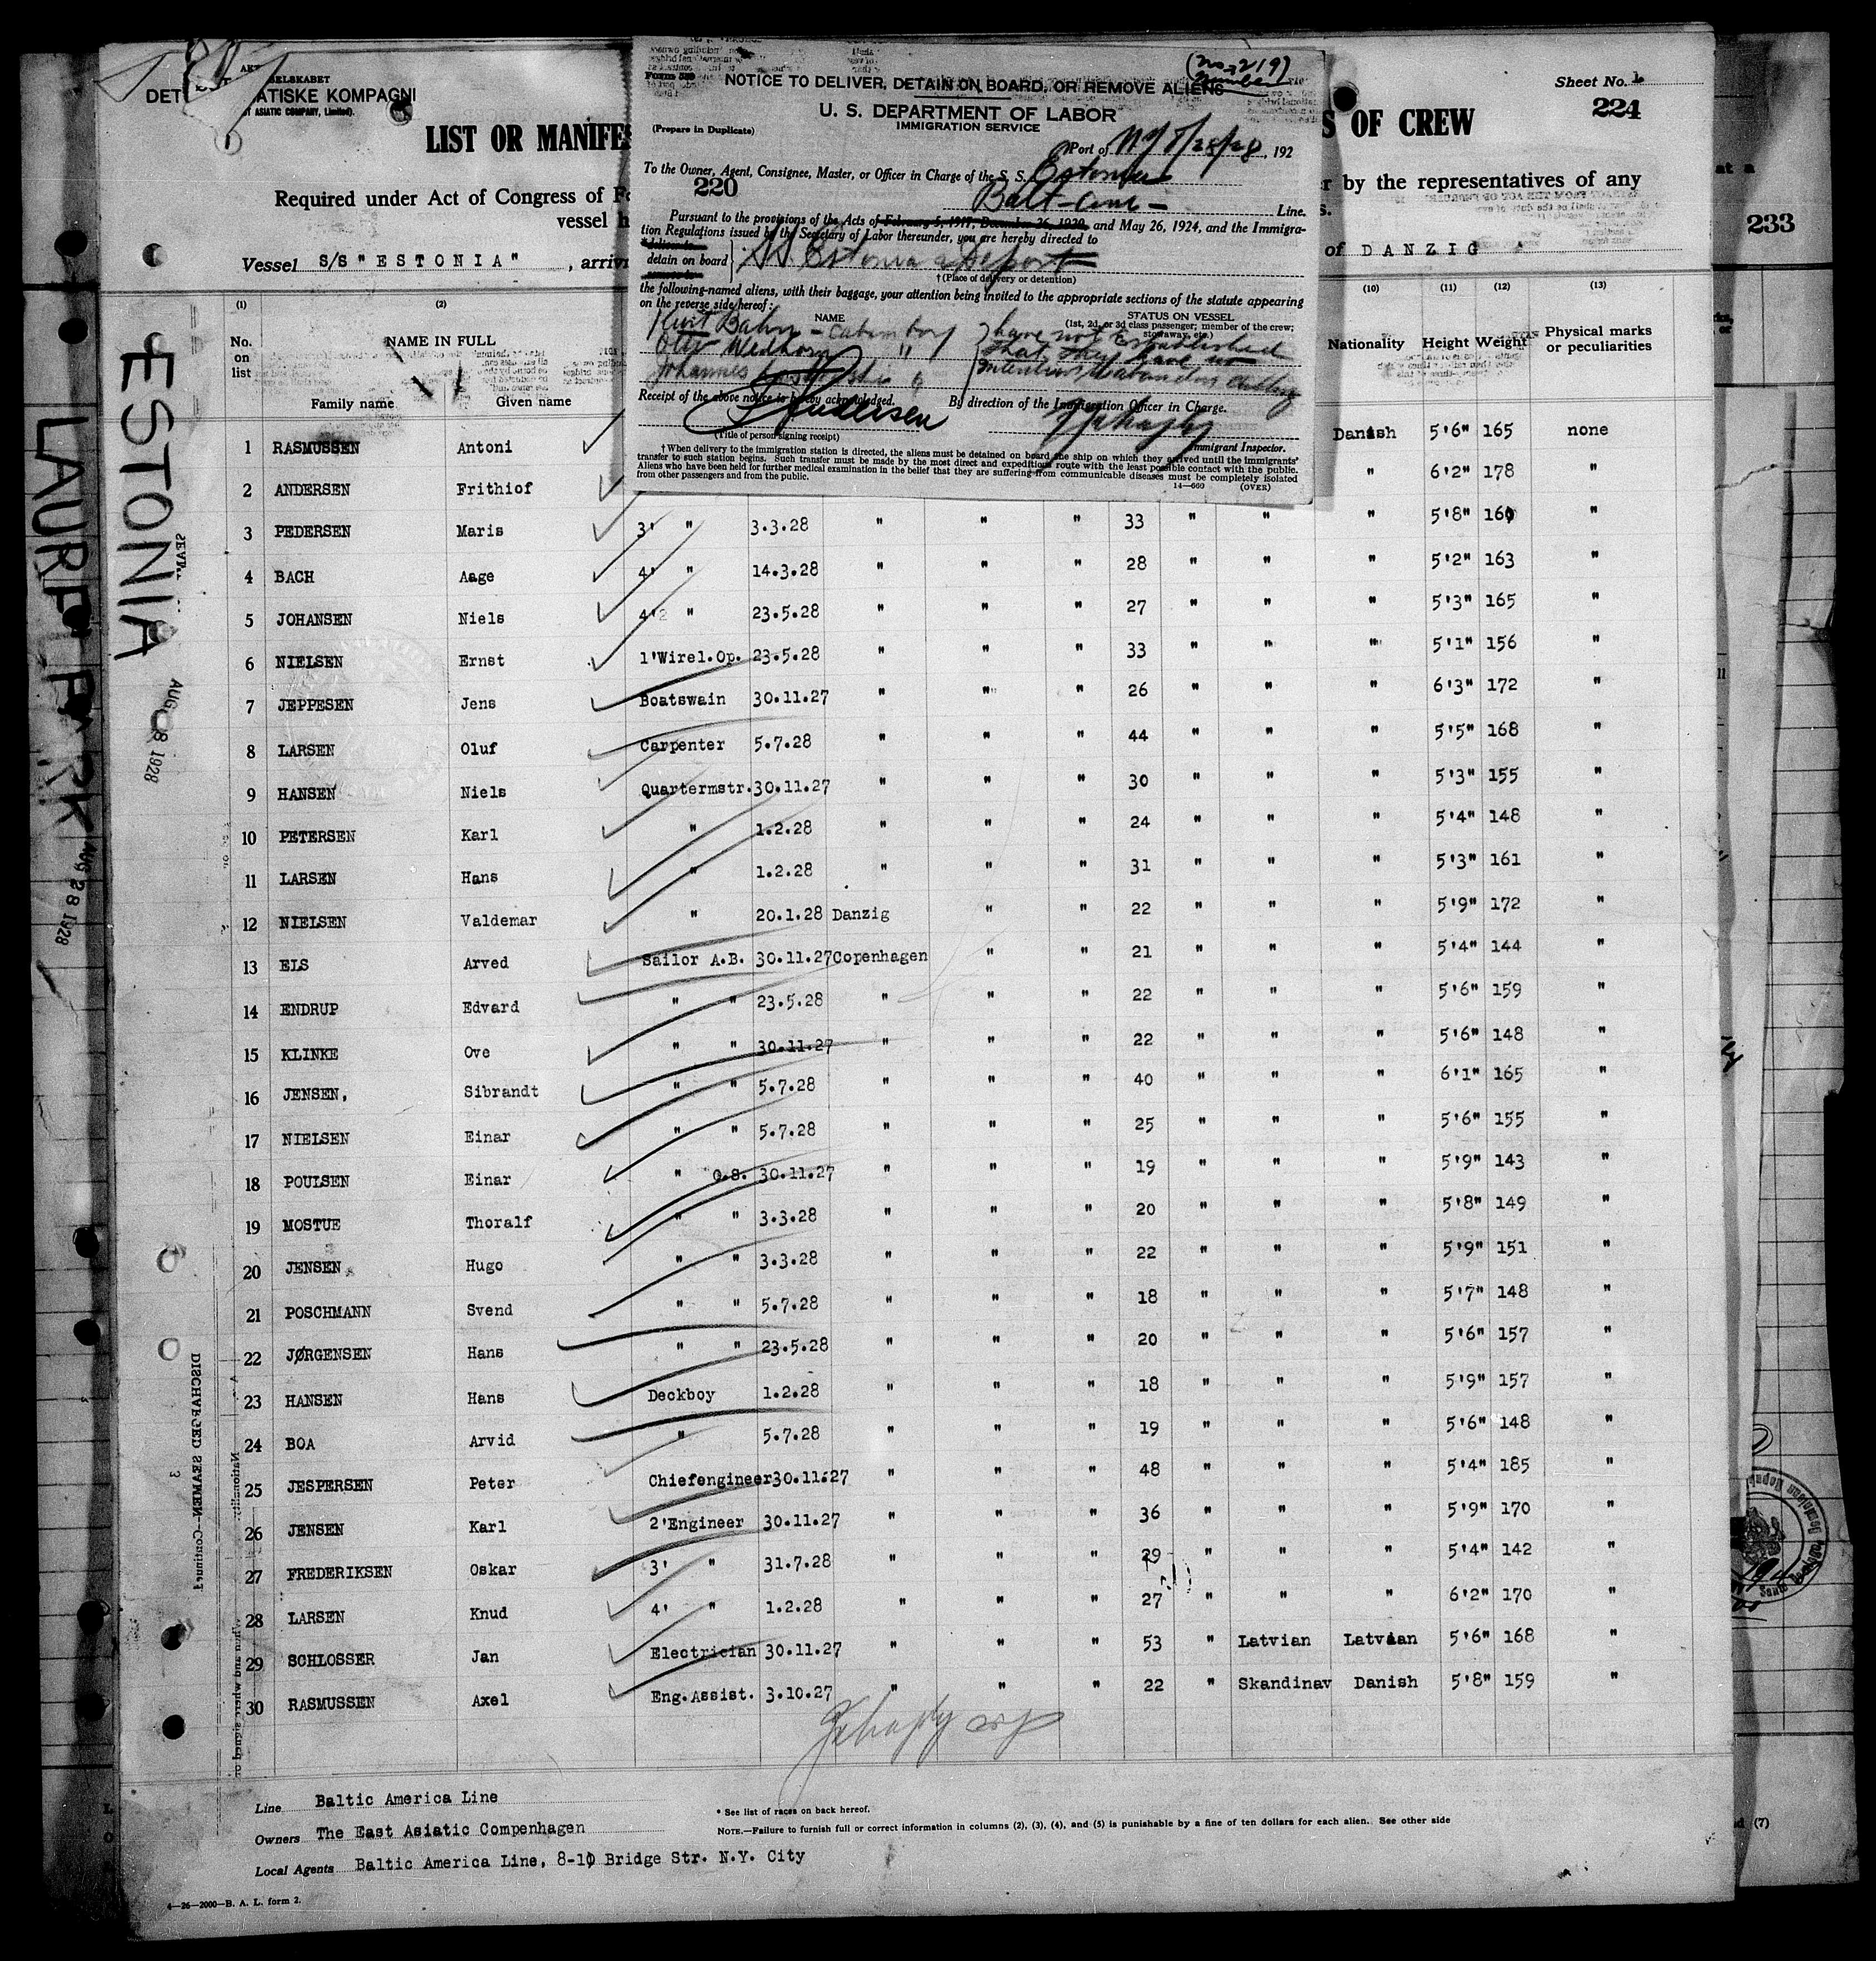 SELSKABET
DET ATISKE KOMPAGNI
ASIATIC COMPANY, Limited).
LIST OR MANIFES
S OF CREW
Sheet No. 1
224
Required under Act of Congress of F
r by the representatives of any
vessel
s.
Vessel S/S "ESTONIA" , arrivi
of DANZIG
233
ESTONIA
AUG 28 1928
AUG 28 1928
NOTICE TO DELIVER, DETAIN ON BOARD, OR REMOVE ALIENS
U. S. DEPARTMENT OF LABOR
IMMIGRATION SERVICE
(Prepare in Duplicate)
Port of NY 8/28/28, 192
To the Owner, Agent, Consignee, Master, or Officer in Charge of the S. S. Estonia
220
Line.
Pursuant to the provisions of the Acts of February 5, 1917, December 26, 1920, and May 26, 1924, and the Immigra-
tion Regulations issued by the Secretary of Labor thereunder, you are hereby directed to
detain on board SS. Estonia & Deport
† (Place of delivery or detention)
the following-named aliens, with their baggage, your attention being invited to the appropriate sections of the statute appearing
on the reverse side hereof:
NAME
STATUS ON VESSEL
(1st, 2d, or 3d class passenger; member of the crew;
stowaway, etc.)
Kurt Bahn - cabin boy have not established
Otto that they have no
Johannes
Receipt of the above notice is hereby acknowledged.
By direction of the Immigration Officer in Charge.
Andersen
(Title of person signing receipt)
Immigrant Inspector.
† When delivery to the immigration station is directed, the aliens must be detained on board the ship on which they arrived until the immigrants'
transfer to such station begins. Such transfer must be made by the most direct and expeditious route with the least possible contact with the public.
Aliens who have been held for further medical examination in the belief that they are suffering from communicable diseases must be completely isolated
from other passengers and from the public.
14—660 (OVER)
(1) (2) (10) (11) (12) (13)
No. on list NAME IN FULL Nationality Height Weight Physical marks or peculiarities
Family name Given name
1 RASMUSSEN Antoni Danish 5'6" 165 none
2 ANDERSEN Frithiof " 6'2" 178 "
3 PEDERSEN Maris 3' " 3.3.28 " " " 33 " " " 5'8" 160 "
4 BACH Aage 4' " 14.3.28 " " " 28 " " " 5'2" 163 "
5 JOHANSEN Niels 4'2 " 23.5.28 " " " 27 " " " 5'3" 165 "
6 NIELSEN Ernst 1'Wirel.Op. 23.5.28 " " " 33 " " " 5'1" 156 "
7 JEPPESEN Jens Boatswain 30.11.27 " " " 26 " " " 6'3" 172 "
8 LARSEN Oluf Carpenter 5.7.28 " " " 44 " " " 5'5" 168 "
9 HANSEN Niels Quartermstr. 30.11.27 " " " 30 " " " 5'3" 155 "
10 PETERSEN Karl " 1.2.28 " " " 24 " " " 5'4" 148 "
11 LARSEN Hans " 1.2.28 " " " 31 " " " 5'3" 161 "
12 NIELSEN Valdemar " 20.1.28 Danzig " " 22 " " " 5'9" 172 "
13 ELS Arved Sailor A.B. 30.11.27 Copenhagen " " 21 " " " 5'4" 144 "
14 ENDRUP Edvard " " 23.5.28 " " " 22 " " " 5'6" 159 "
15 KLINKE Ove " " 30.11.27 " " " 22 " " " 5'6" 148 "
16 JENSEN, Sibrandt " " 5.7.28 " " " 40 " " " 6'1" 165 "
17 NIELSEN Einar " " 5.7.28 " " " 25 " " " 5'6" 155 "
18 POULSEN Einar " O.S. 30.11.27 " " " 19 " " " 5'9" 143 "
19 MOSTUE Thoralf " " 3.3.28 " " " 20 " " " 5'8" 149 "
20 JENSEN Hugo " " 3.3.28 " " " 22 " " " 5'9" 151 "
21 POSCHMANN Svend " " 5.7.28 " " " 18 " " " 5'7" 148 "
22 JØRGENSEN Hans " " 23.5.28 " " " 20 " " " 5'6" 157 "
23 HANSEN Hans Deckboy 1.2.28 " " " 18 " " " 5'9" 157 "
24 BOA Arvid " 5.7.28 " " " 19 " " " 5'6" 148 "
25 JESPERSEN Peter Chiefengineer 30.11.27 " " " 48 " " " 5'4" 185 "
26 JENSEN Karl 2'Engineer 30.11.27 " " " 36 " " " 5'9" 170 "
27 FREDERIKSEN Oskar 3' " 31.7.28 " " " 29 " " " 5'4" 142 "
28 LARSEN Knud 4' " 1.2.28 " " " 27 " " " 6'2" 170 "
29 SCHLOSSER Jan Electrician 30.11.27 " " " 53 " Latvian Latvian 5'6" 168 "
30 RASMUSSEN Axel Eng.Assist. 3.10.27 " " " 22 " Skandinav Danish 5'8" 159 "
DISCHARGED SEAMEN—Continued
Line Baltic America Line
* See list of races on back hereof.
Owners The East Asiatic Compenhagen
NOTE.—Failure to furnish full or correct information in columns (2), (3), (4), and (5) is punishable by a fine of ten dollars for each alien. See other side
Local Agents Baltic America Line, 8-10 Bridge Str. N.Y. City
4—26—2000—B. A. L. form 2.
(7)